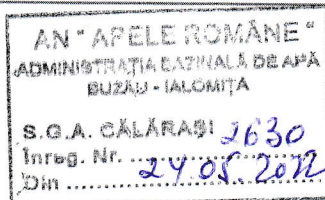 AN "APELE ROMÂNE"
ADMINISTRAŢIA BAZINALĂ DE APĂ
BUZĂU - IALOMIŢA
S.G.A. CĂLĂRAŞI
Înreg. Nr. ......2630
Din ......24.05.2022